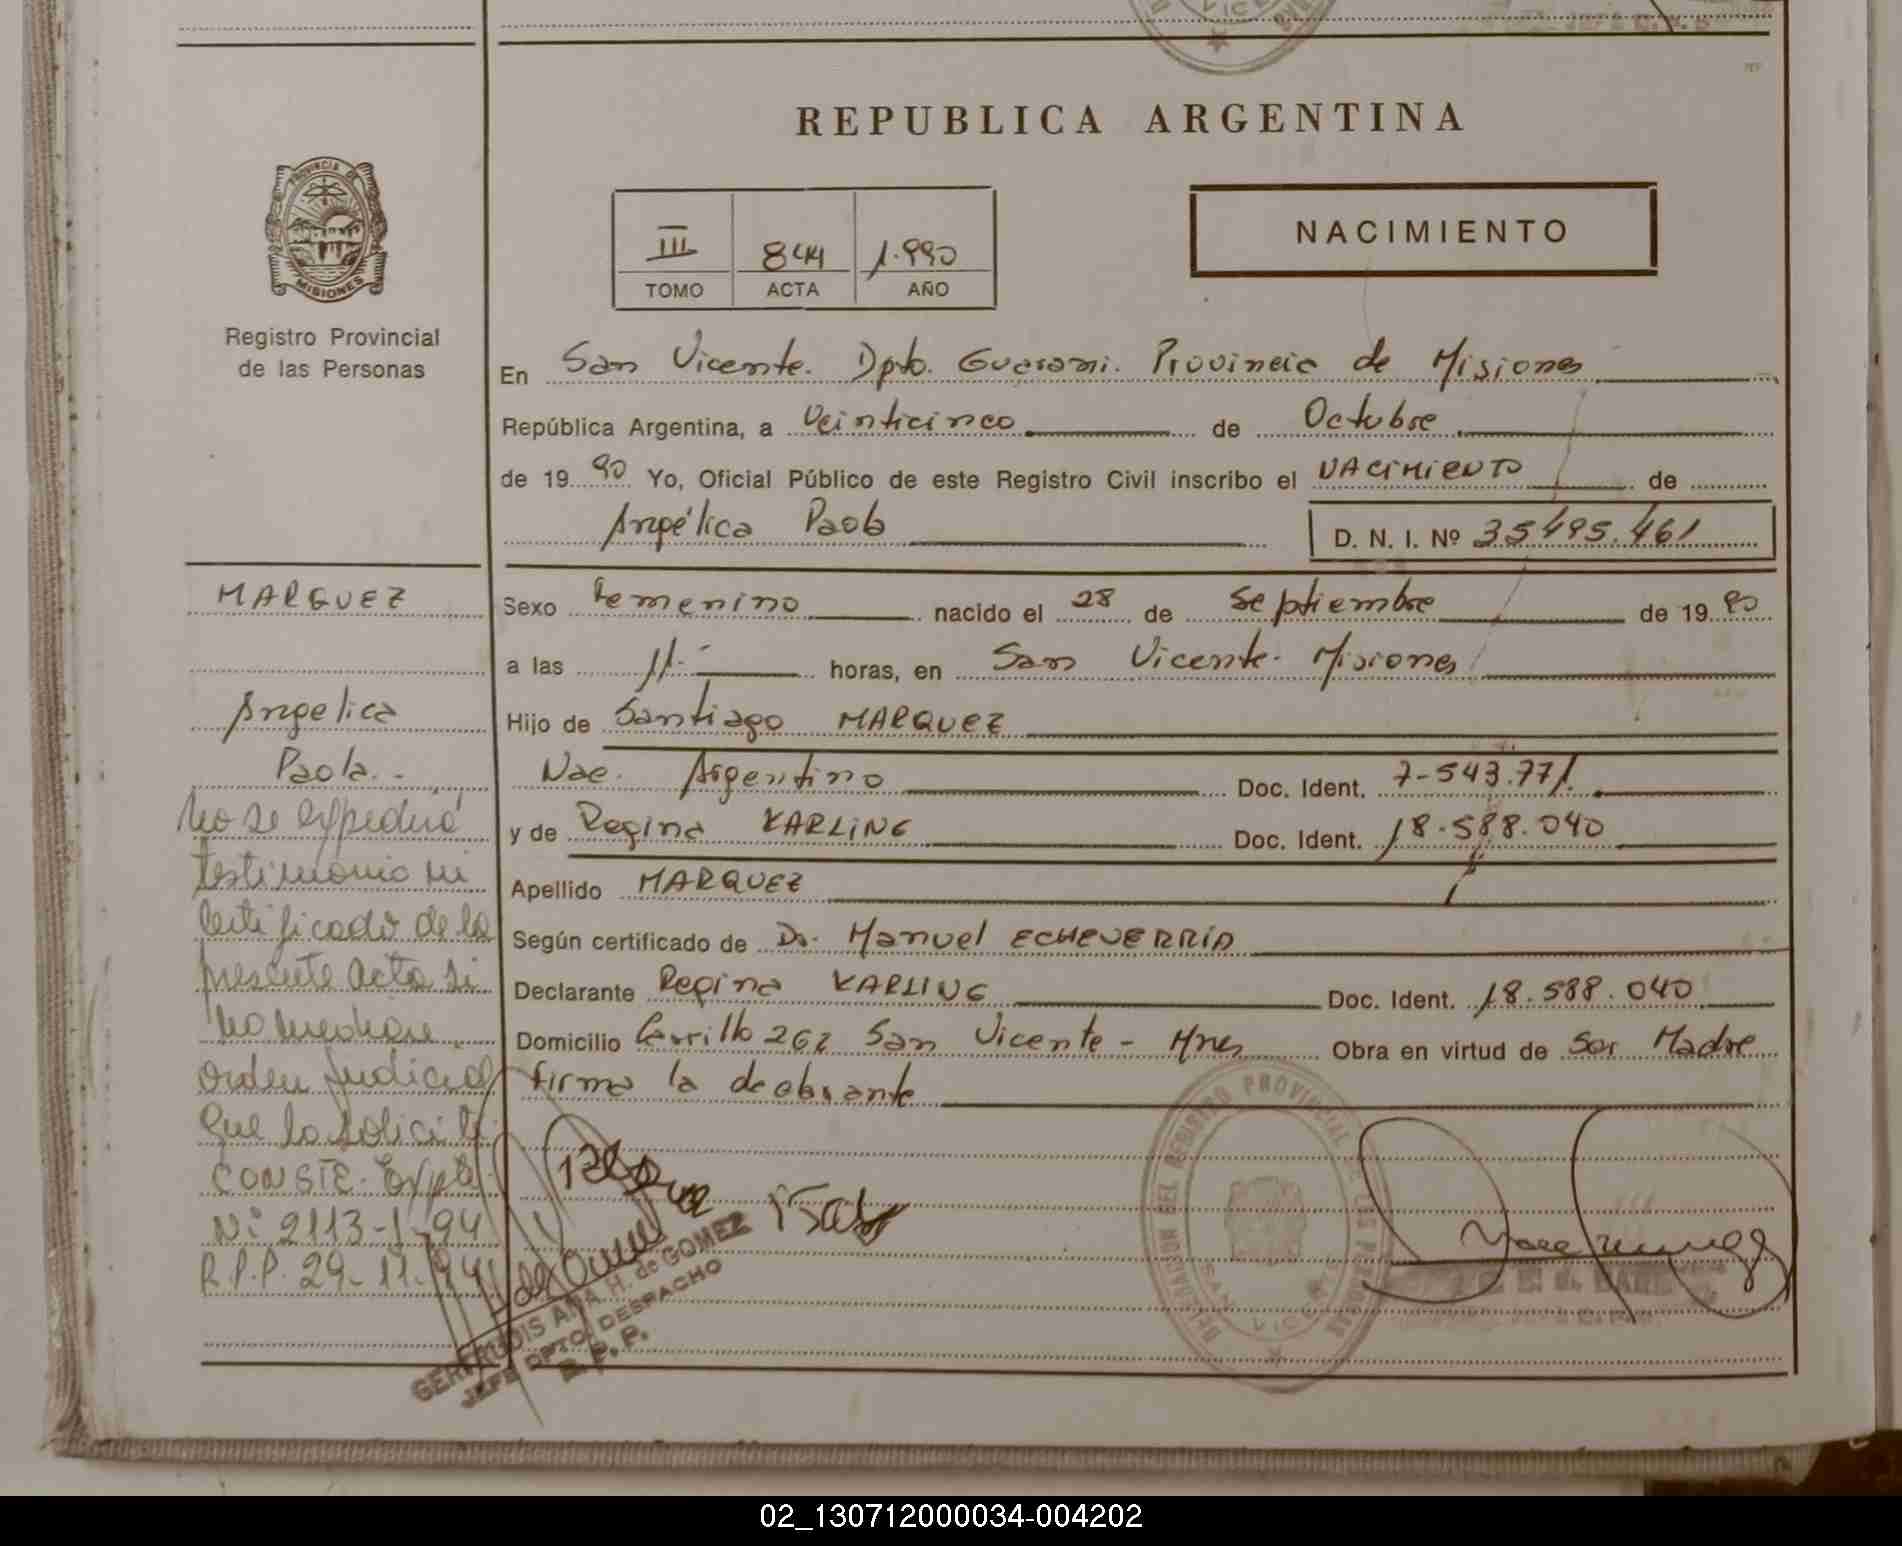 REPUBLICA ARGENTINA
PROVINCIA DE
MISIONES
Registro Provincial
de las Personas
III 844 1.990
TOMO ACTA AÑO
NACIMIENTO
En San Vicente. Dpto. Guarani. Provincia de Misiones
República Argentina, a Veinticinco de Octubre
de 1990 Yo, Oficial Público de este Registro Civil inscribo el NACIMIENTO de
Angélica Paola D. N. I. Nº 35.495.461
MARQUEZ
Angelica
Paola.-
Sexo Femenino nacido el 28 de Septiembre de 1990
a las 11.- horas, en San Vicente - Misiones
Hijo de Santiago MARQUEZ
Nac. Argentino Doc. Ident. 7-543.771.
y de Regina KARLING Doc. Ident. 18.588.040
Apellido MARQUEZ
Según certificado de Dr. Manuel ECHEVERRIA
Declarante Regina KARLING Doc. Ident. 18.588.040
Domicilio Carrillo 262 San Vicente - Mnes Obra en virtud de Ser Madre
firma la declarante
No se expedirá
testimonio ni
certificado de la
presente acta si
no mediare
orden Judicial
que lo solicite
CONSTE. Expte
Nº 2113-1-94
R.P.P. 29-11-94
GERTRUDIS ANA H. de GOMEZ
JEFE DPTO. DESPACHO
R. P. P.
DELEGACION DEL REGISTRO PROVINCIAL DE LAS PERSONAS
SAN VICENTE
02_130712000034-004202